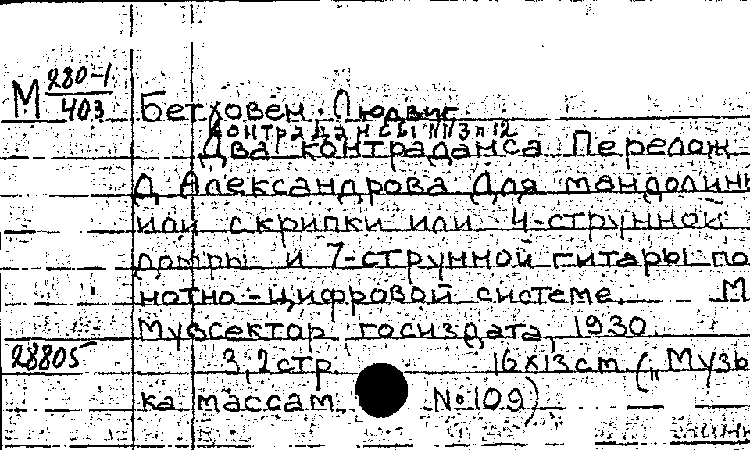 М 280-1/403
Бетховен. Людвиг
Контрадансы №№3 и 12
Два контраданса Перелож
Д Александрова Для мандолин
или скрипки или 4-струнной
домры и 7-струнной гитары по
нотно-цифровой системе. М
Музсектор госиздата, 1930
28805 3,2стр 16х13cm („Музы
ка массам №109)